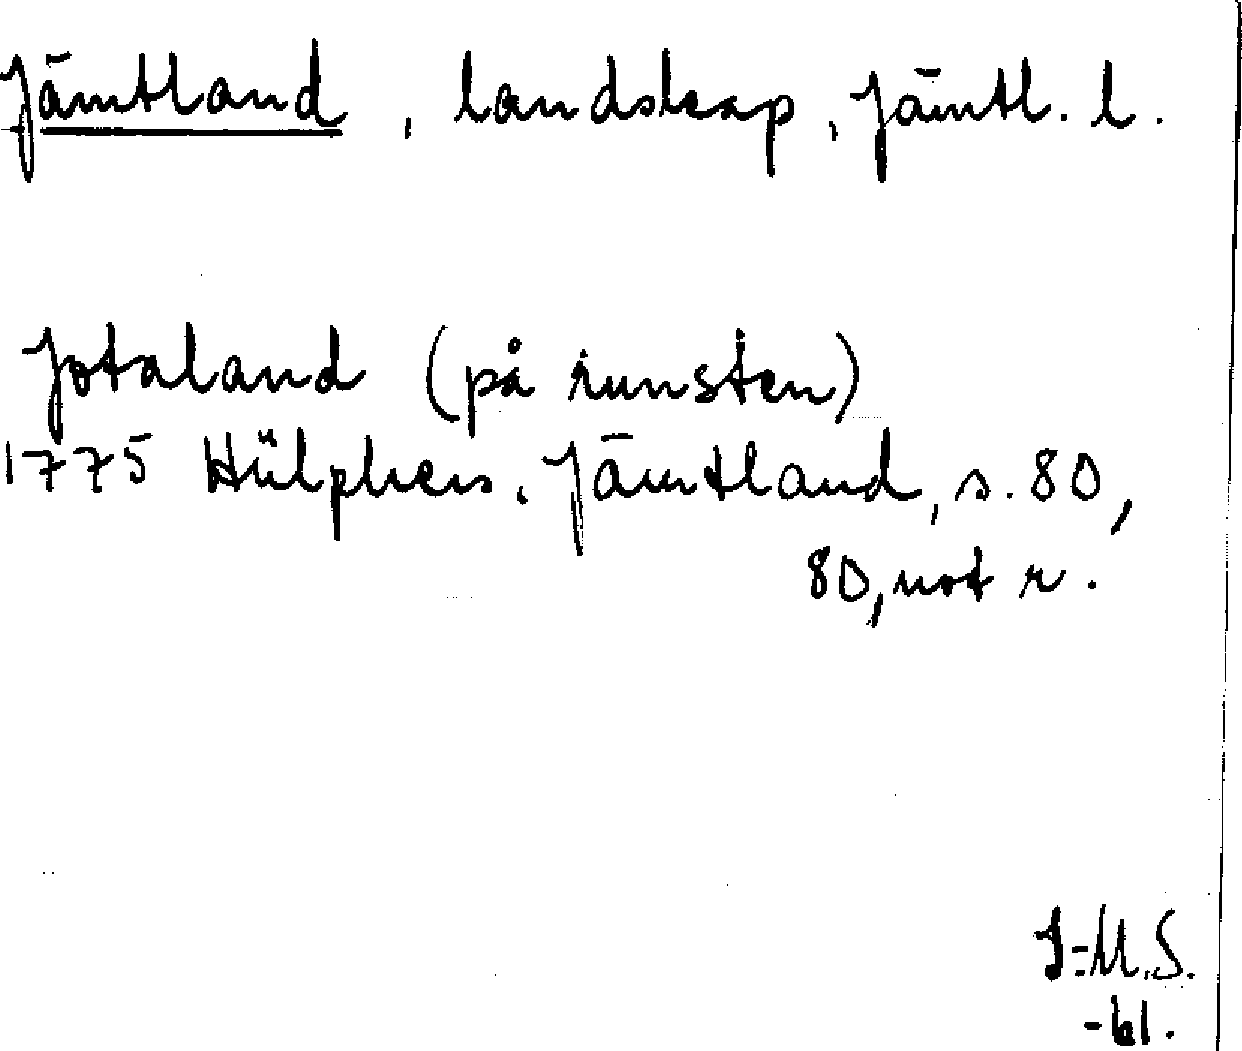 Jämtland, landskap, Jämtl. l.
Jotaland (på runsten)
1775 Hülphers. Jämtland, s. 80,
80, not r.
I-M.S.
-61.